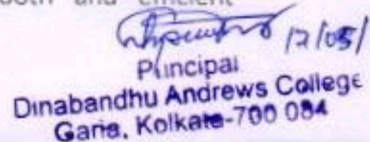 and efficient
17/05/
Principal
Dinabandhu Andrews College
Garia, Kolkata-700 084